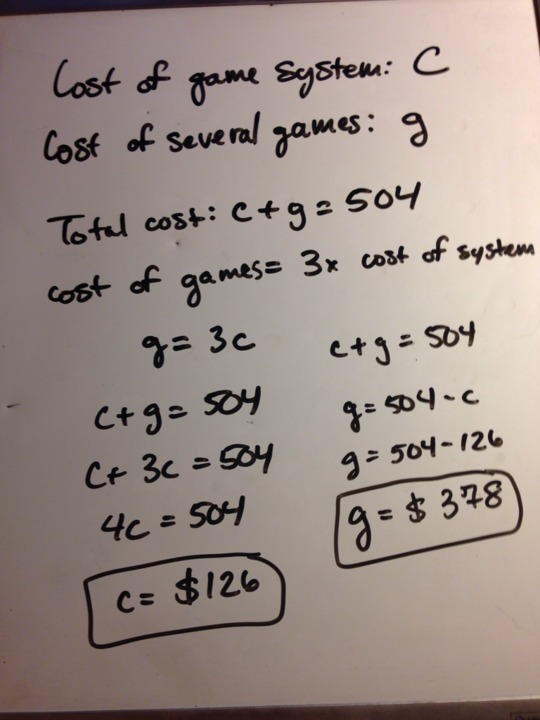 Cost of game system: C
Cost of several games: g
Total cost: c+g = 504
cost of games= 3x cost of system
g= 3c
c+g= 504
c+ 3c = 504
4c = 504
c= $126
c+g = 504
g= 504-c
g= 504-126
g= $378